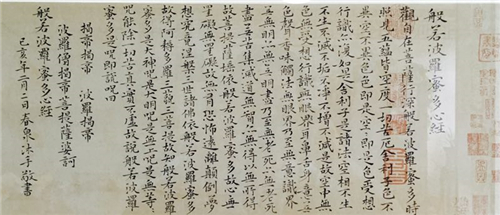 般若波羅蜜多心經
觀自在菩薩行深般若波羅蜜多時
照見五蘊皆空度一切苦厄舍利子色不
異空空不異色色即是空空即是色受想
行識亦復如是舍利子是諸法空相
不生不滅不垢不淨不增不減是故空中無
色無受想行識無眼耳鼻舌身意無
色聲香味觸法無眼界乃至無意識界
無無明亦無無明盡乃至無老死亦無老死
盡無苦集滅道無智亦無得以無所得
故菩提薩埵依般若波羅蜜多故心無
罣礙無罣礙故無有恐怖遠離顛倒夢
想究竟涅槃三世諸佛依般若波羅蜜多
故得阿耨多羅三藐三菩提故知般若波羅
蜜多是大神咒是大明咒是無上咒是無等等
咒能除一切苦真實不虛故說般若波羅
蜜多咒即說咒曰
揭帝揭帝 波羅揭帝
波羅僧揭帝菩提薩婆訶
般若波羅蜜多心經
己亥年二月二日春泉沐手敬書